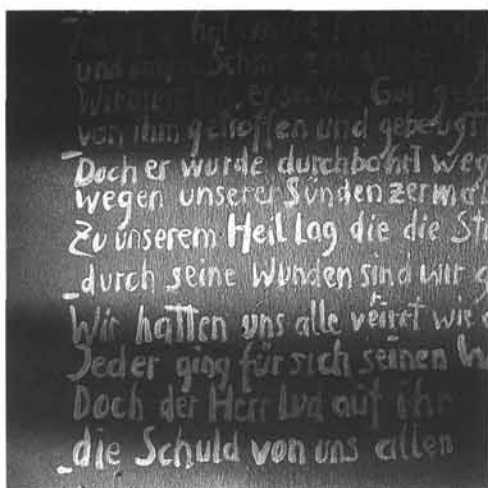 hat
und
Wir er sei von Gott
von ihm getroffen und gebeugt
Doch er wurde durchbohrt weg
wegen unserer Sünden zermal
Zu unserem Heil Lag die die St
durch seine Wunden sind wir g
Wir hatten uns alle verirrt wie
Jeder ging für sich seinen W
Doch der Herr Lud auf ihn
die Schuld von uns allen